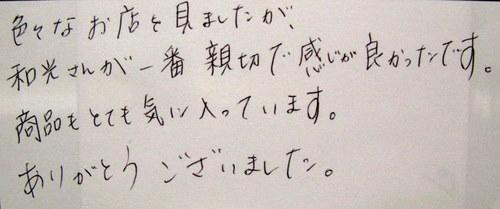 色々なお店を見ましたが、
和光さんが一番 親切で感じが良かったです。
商品もとても気に入っています。
ありがとう ございました。